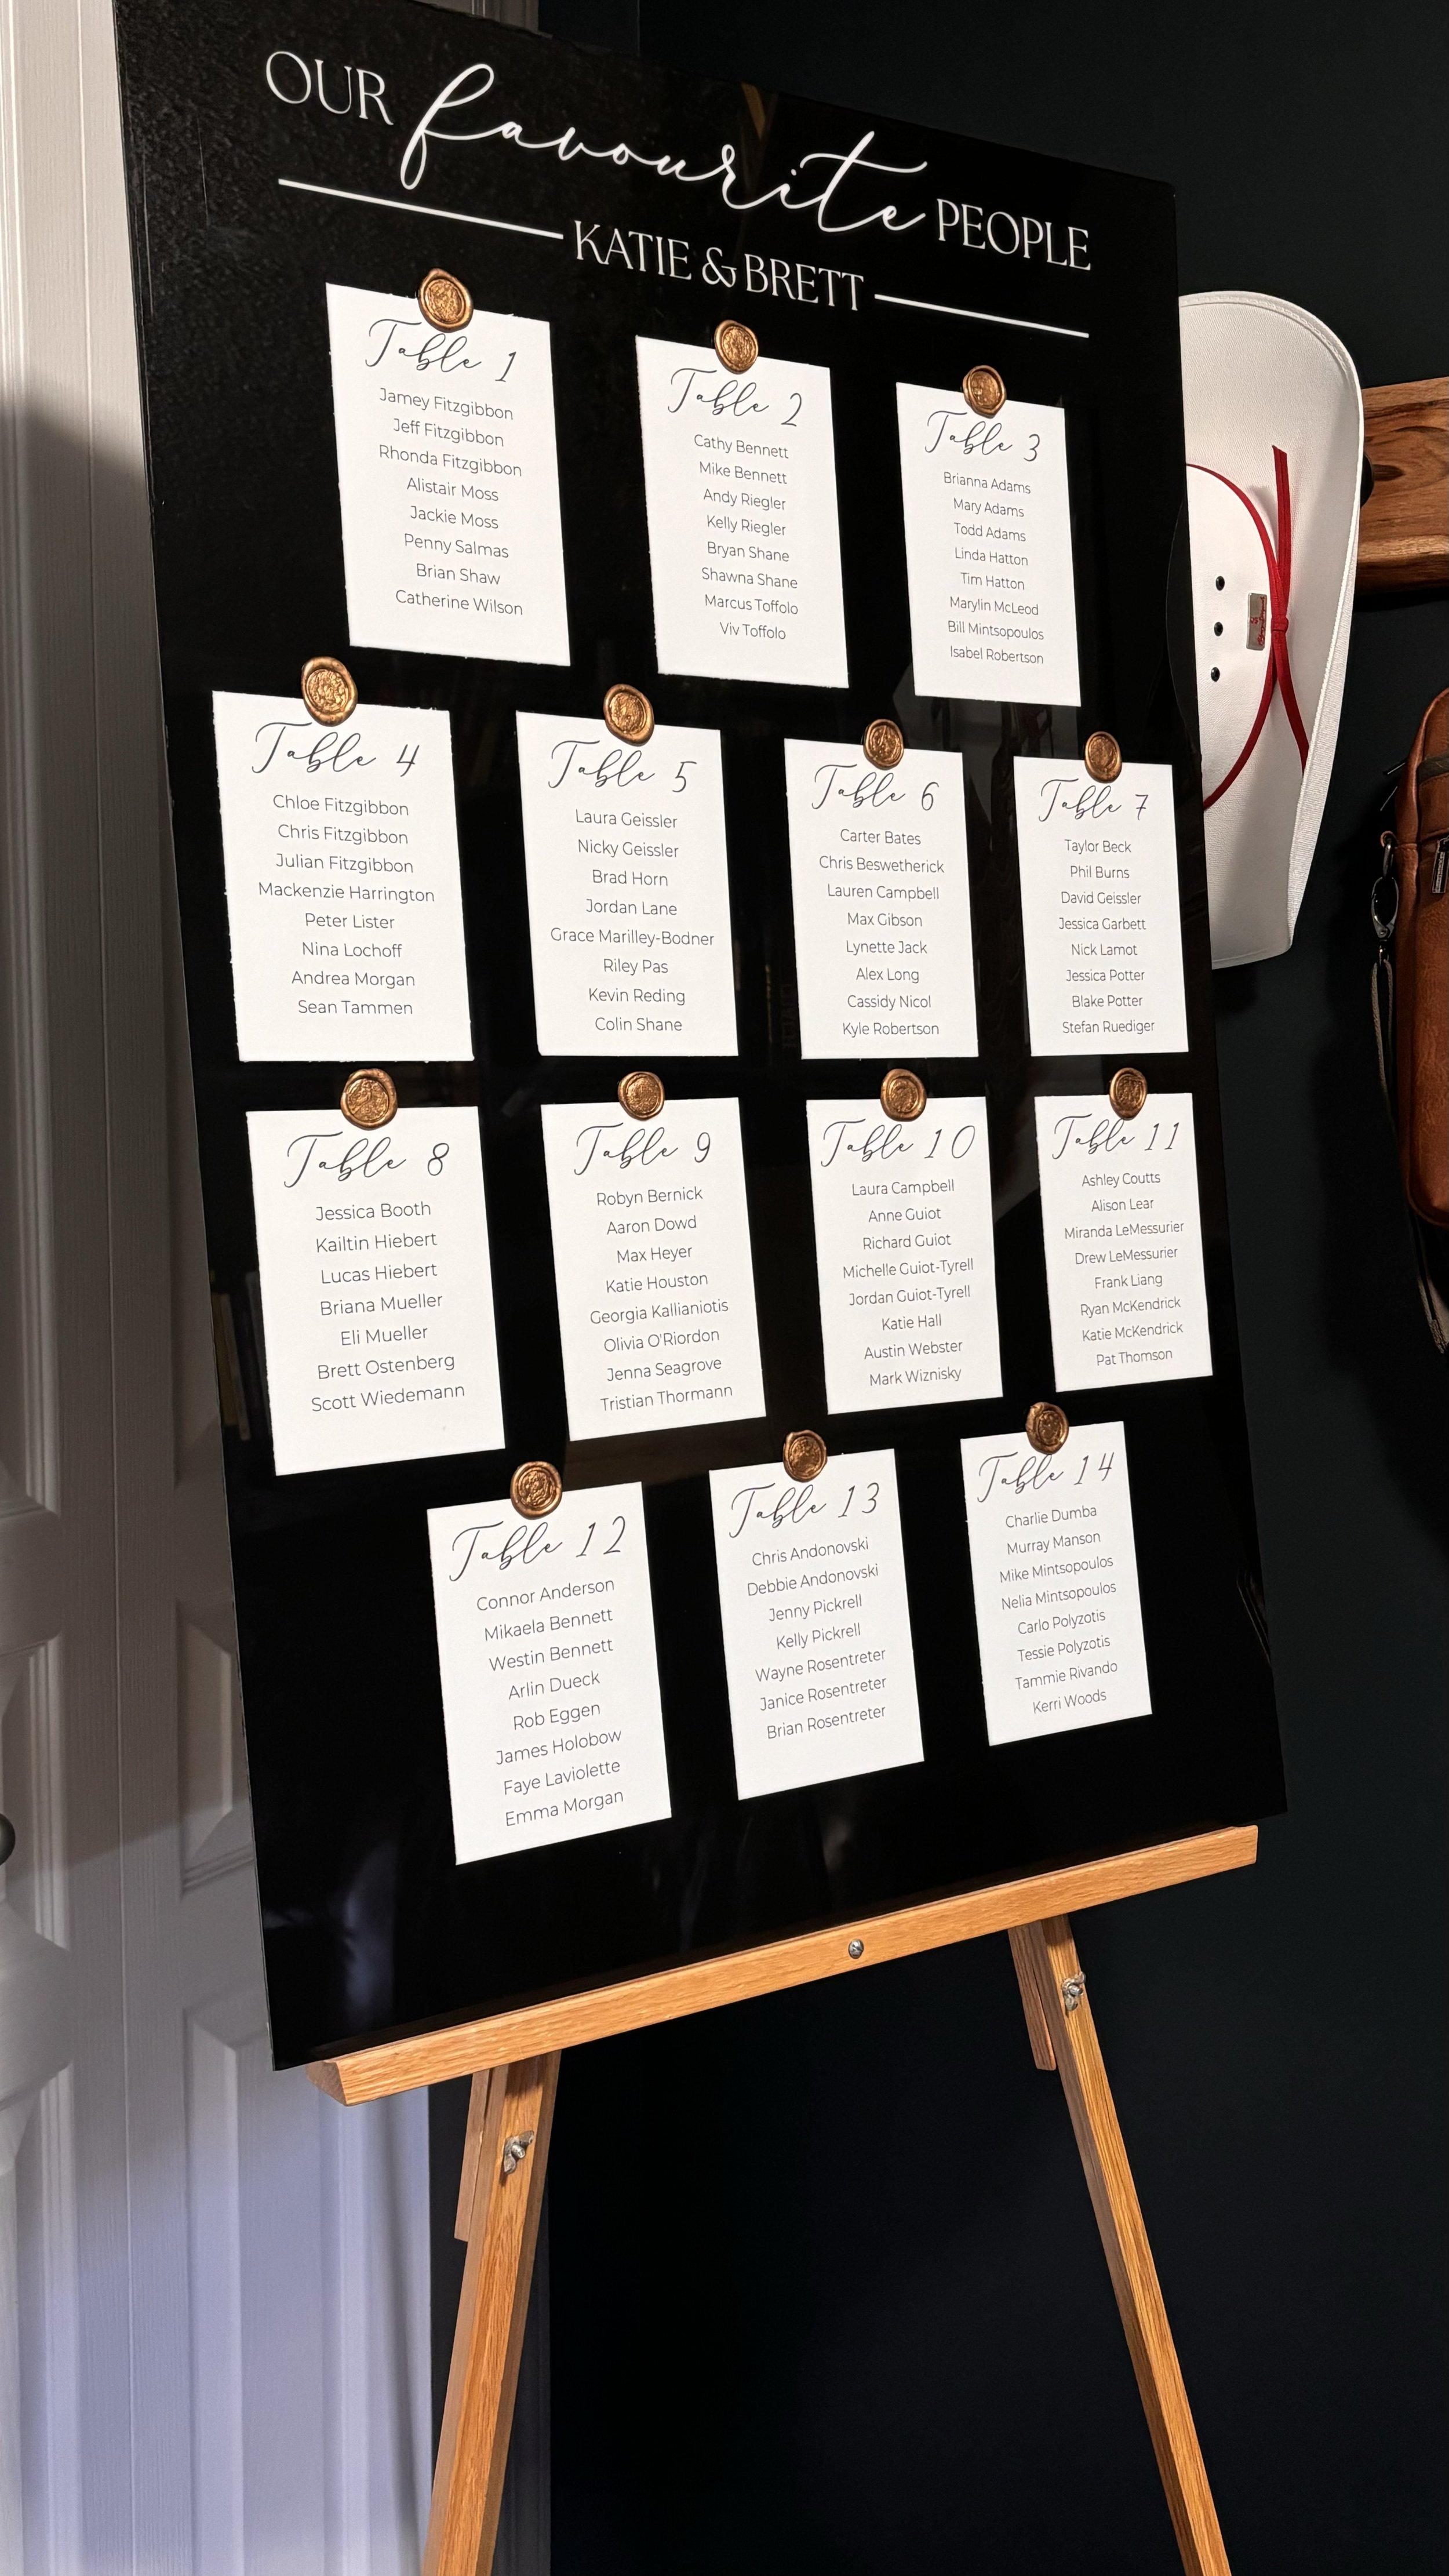 OUR favourite PEOPLE
KATIE & BRETT
Table 1
Jamey Fitzgibbon
Jeff Fitzgibbon
Rhonda Fitzgibbon
Alistair Moss
Jackie Moss
Penny Salmas
Brian Shaw
Catherine Wilson
Table 2
Cathy Bennett
Mike Bennett
Andy Riegler
Kelly Riegler
Bryan Shane
Shawna Shane
Marcus Toffolo
Viv Toffolo
Table 3
Brianna Adams
Mary Adams
Todd Adams
Linda Hatton
Tim Hatton
Marylin McLeod
Bill Mintsopoulos
Isabel Robertson
Table 4
Chloe Fitzgibbon
Chris Fitzgibbon
Julian Fitzgibbon
Mackenzie Harrington
Peter Lister
Nina Lochoff
Andrea Morgan
Sean Tammen
Table 5
Laura Geissler
Nicky Geissler
Brad Horn
Jordan Lane
Grace Marilley-Bodner
Riley Pas
Kevin Reding
Colin Shane
Table 6
Carter Bates
Chris Beswetherick
Lauren Campbell
Max Gibson
Lynette Jack
Alex Long
Cassidy Nicol
Kyle Robertson
Table 7
Taylor Beck
Phil Burns
David Geissler
Jessica Garbett
Nick Lamot
Jessica Potter
Blake Potter
Stefan Ruediger
Table 8
Jessica Booth
Kailtin Hiebert
Lucas Hiebert
Briana Mueller
Eli Mueller
Brett Ostenberg
Scott Wiedemann
Table 9
Robyn Bernick
Aaron Dowd
Max Heyer
Katie Houston
Georgia Kallianiotis
Olivia O'Riordon
Jenna Seagrove
Tristian Thormann
Table 10
Laura Campbell
Anne Guiot
Richard Guiot
Michelle Guiot-Tyrell
Jordan Guiot-Tyrell
Katie Hall
Austin Webster
Mark Wiznisky
Table 11
Ashley Coutts
Alison Lear
Miranda LeMessurier
Drew LeMessurier
Frank Liang
Ryan McKendrick
Katie McKendrick
Pat Thomson
Table 12
Connor Anderson
Mikaela Bennett
Westin Bennett
Arlin Dueck
Rob Eggen
James Holobow
Faye Laviolette
Emma Morgan
Table 13
Chris Andonovski
Debbie Andonovski
Jenny Pickrell
Kelly Pickrell
Wayne Rosentreter
Janice Rosentreter
Brian Rosentreter
Table 14
Charlie Dumba
Murray Manson
Mike Mintsopoulos
Nelia Mintsopoulos
Carlo Polyzotis
Tessie Polyzotis
Tammie Rivando
Kerri Woods